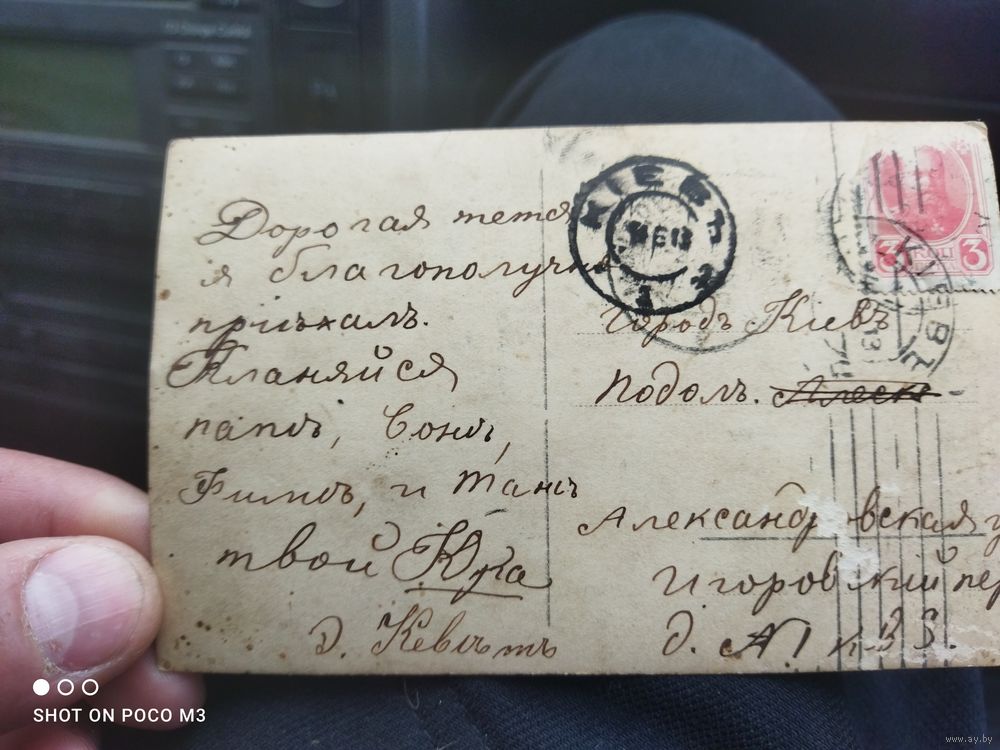 Дорогая тетя
я благополучно
пріѣхалъ.
Кланяйся
папѣ, Сонѣ,
Фимѣ, и Танѣ
твой Юра
д. Кевѣтъ
КІЕВЪ
городъ Кіевъ
Подолъ.
Александровская
Игоровский пер
д. №1 кв 3.
3 3
SHOT ON POCO M3
www.ay.by